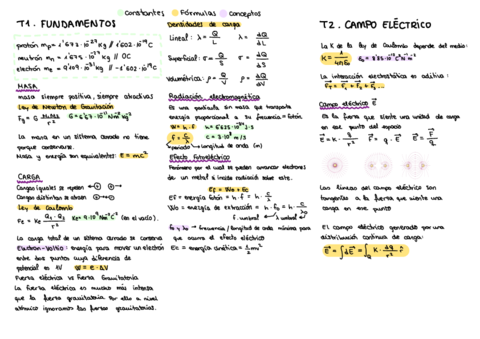 Constantes Fórmulas Conceptos
T1. FUNDAMENTOS
protón mp = 1'673·10⁻²⁷ Kg // 1'602·10⁻¹⁹ C
neutrón mn = 1'675·10⁻²⁷ Kg // 0C
electrón me = 9'109·10⁻³¹ Kg // -1'602·10⁻¹⁹ C
MASA
masa siempre positiva, siempre atractivas
Ley de Newton de Gravitación
La masa en un sistema cerrado no tiene
porque conservarse.
Masa y energía son equivalentes: E = mc²
CARGA
Cargas iguales se repelen
Cargas distintas se atraen
Ley de Coulomb
(en el vacío).
La carga total de un sistema cerrado se conserva
Electron-Voltio: energía para mover un electrón
entre dos puntos cuya diferencia de
potencial es 1V W = e · ΔV
Fuerza eléctrica vs Fuerza Gravitatoria
La fuerza eléctrica es mucho más intensa
que la fuerza gravitatoria por ello a nivel
atómico ignoramos las fuerzas gravitatorias.
Densidades de carga
Lineal: λ = Q/L λ = dQ/dL
Superficial: σ = Q/S σ = dQ/dS
Volumétrica: ρ = Q/V ρ = dQ/dV
Radiación electromagnética
Es una partícula sin masa que transporta
energía proporcional a su frecuencia / Energía
W = h·f
f = c/λ c = 3·10⁸ m/s
Longitud de onda (m)
Efecto fotoeléctrico
Fenómeno por el cual se pueden arrancar electrones
de un metal si incide radiación sobre este.
Ef = Wo + Ec
Ef = energía fotón = h·f = h·c/λ
Wo = energía de extracción = h·fo = h·c/λo
f. umbral λ umbral
fo y λo → frecuencia / longitud de onda mínima para
que ocurra el efecto eléctrico
Ec = energía cinética = ½mv²
T2. CAMPO ELÉCTRICO
La K de la ley de Coulomb depende del medio:
La interacción electrostática es aditiva:
Campo eléctrico E
Es la fuerza que siente una unidad de carga
en ese punto del espacio
Las líneas del campo eléctrico son
tangentes a la fuerza que siente una
carga en ese punto
El campo eléctrico generado por una
distribución continua de carga: